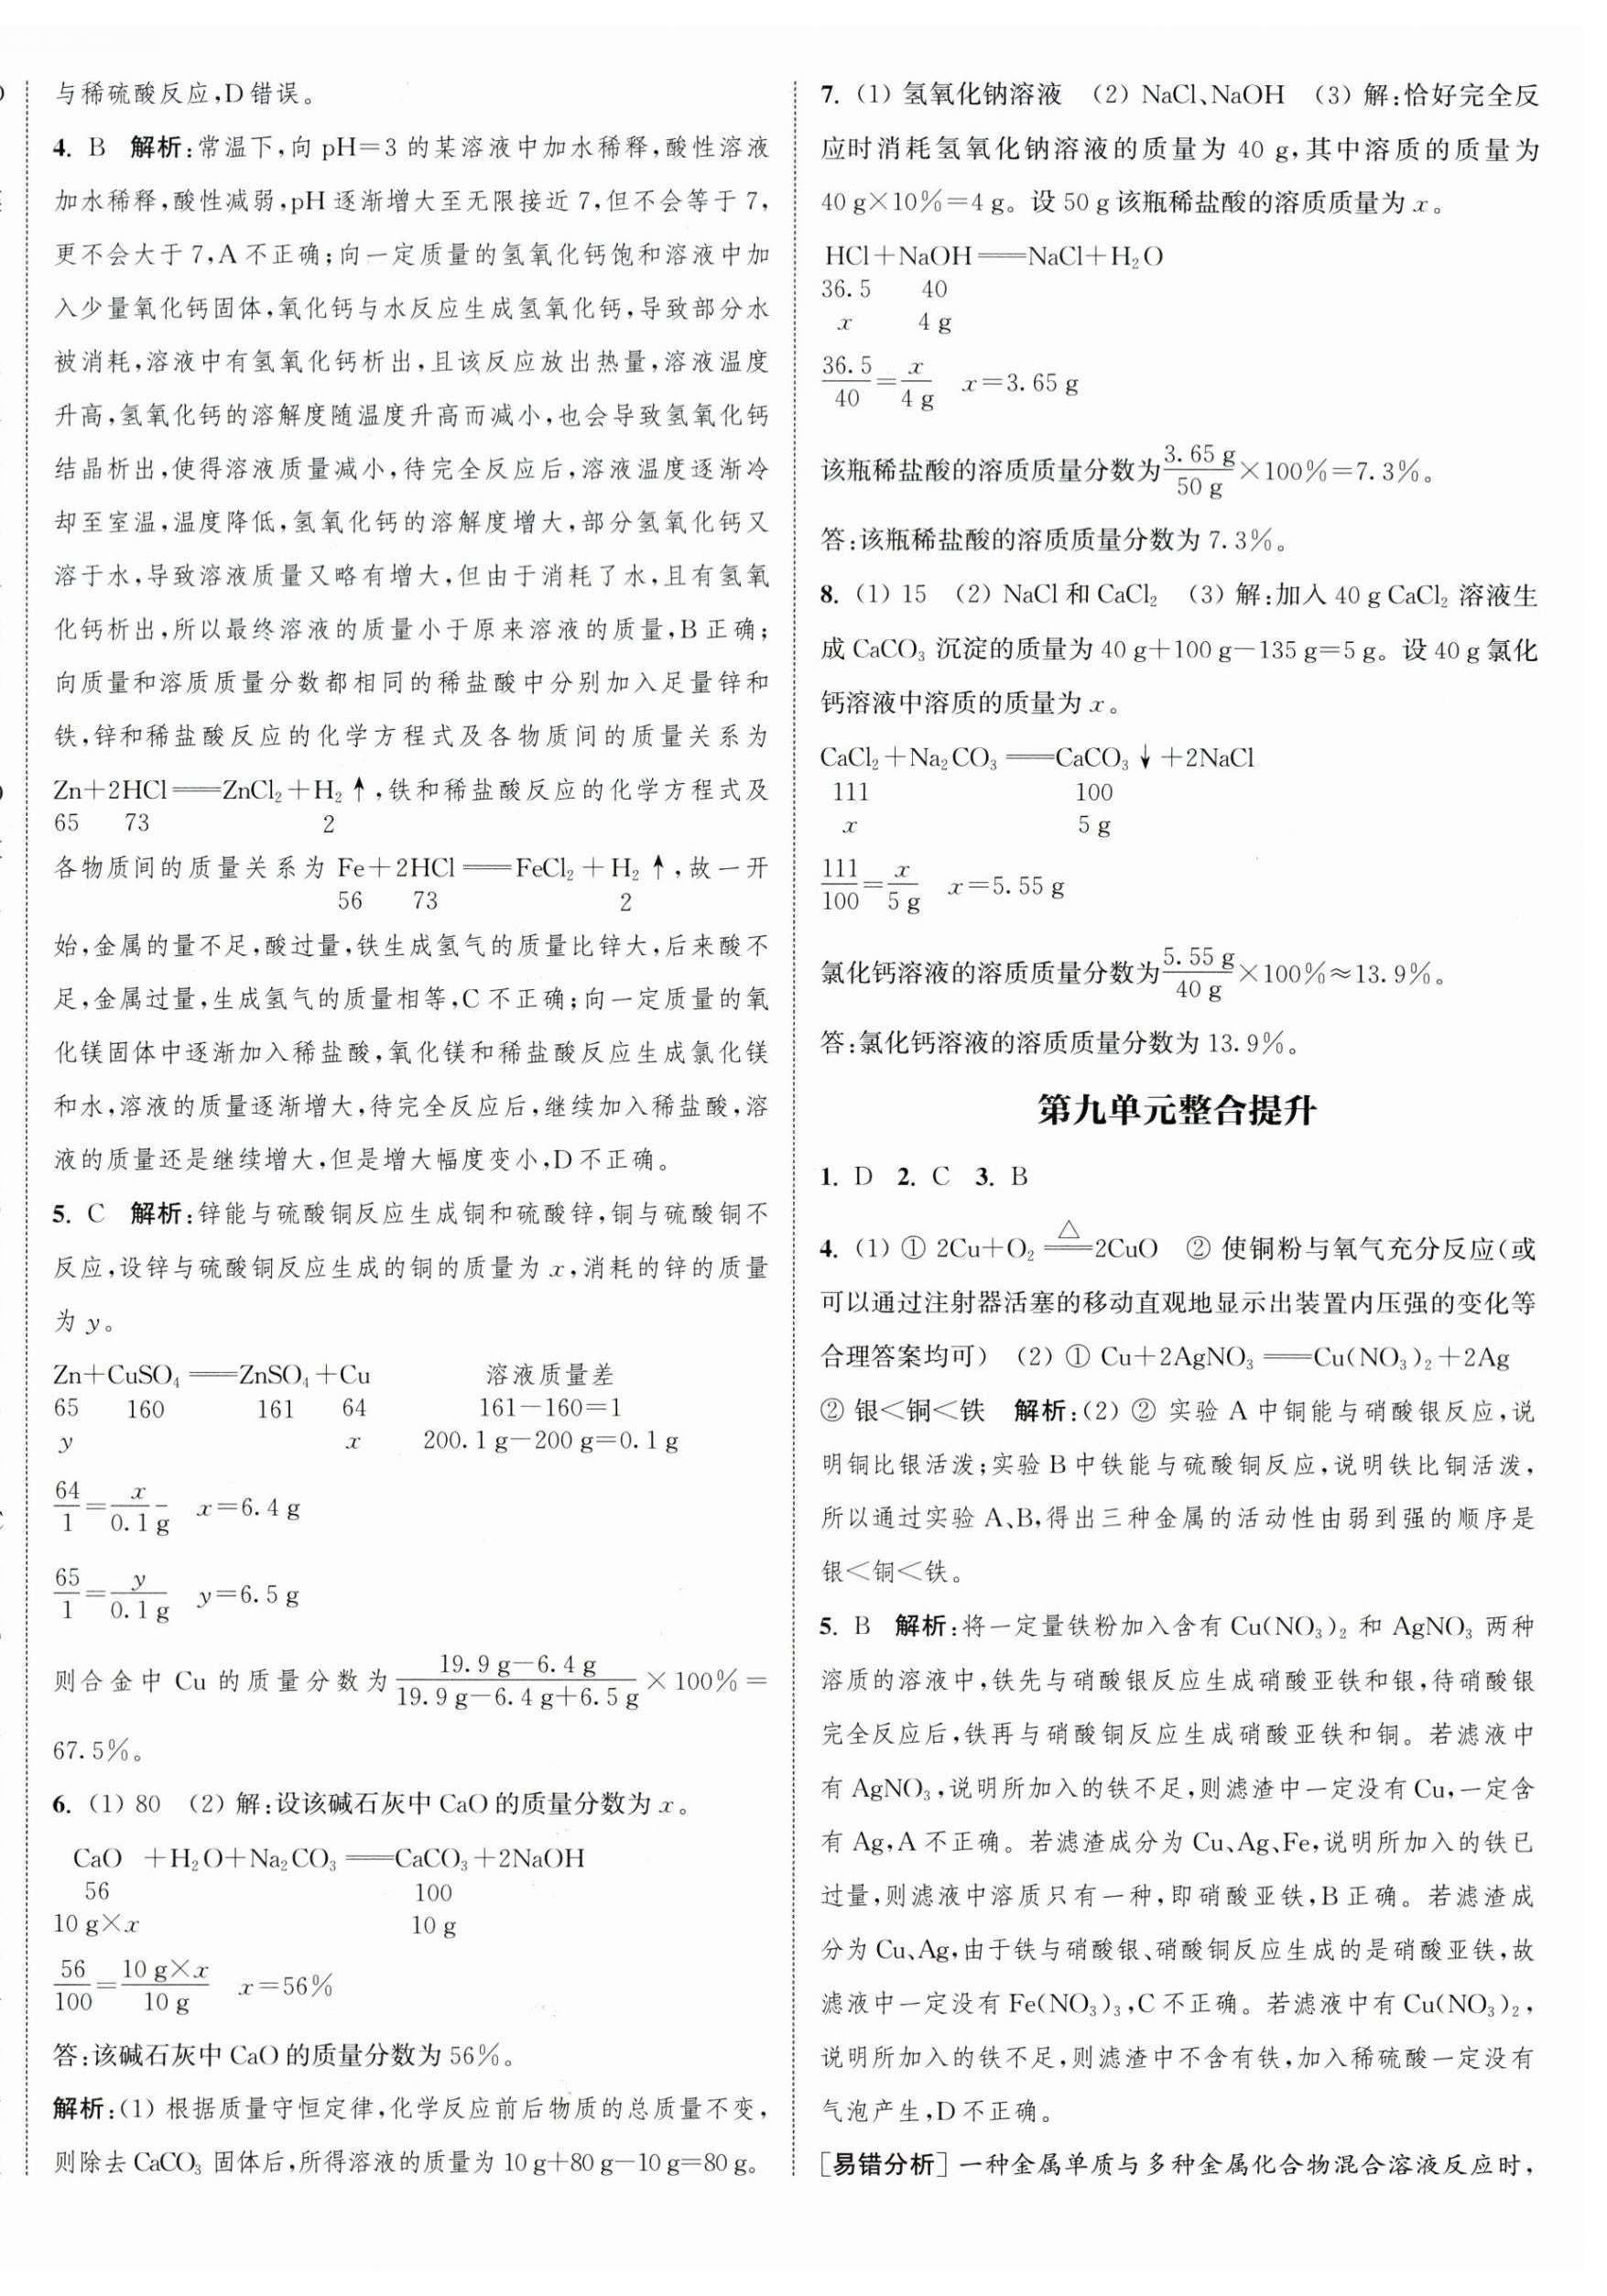 与稀硫酸反应,D错误。
4. B 解析:常温下,向 pH=3 的某溶液中加水稀释,酸性溶液
加水稀释,酸性减弱,pH 逐渐增大至无限接近 7,但不会等于 7,
更不会大于 7,A 不正确;向一定质量的氢氧化钙饱和溶液中加
入少量氧化钙固体,氧化钙与水反应生成氢氧化钙,导致部分水
被消耗,溶液中有氢氧化钙析出,且该反应放出热量,溶液温度
升高,氢氧化钙的溶解度随温度升高而减小,也会导致氢氧化钙
结晶析出,使得溶液质量减小,待完全反应后,溶液温度逐渐冷
却至室温,温度降低,氢氧化钙的溶解度增大,部分氢氧化钙又
溶于水,导致溶液质量又略有增大,但由于消耗了水,且有氢氧
化钙析出,所以最终溶液的质量小于原来溶液的质量,B 正确;
向质量和溶质质量分数都相同的稀盐酸中分别加入足量锌和
铁,锌和稀盐酸反应的化学方程式及各物质间的质量关系为
Zn+2HCl══ZnCl₂+H₂↑,铁和稀盐酸反应的化学方程式及
65 73 2
各物质间的质量关系为 Fe+2HCl══FeCl₂+H₂↑,故一开
56 73 2
始,金属的量不足,酸过量,铁生成氢气的质量比锌大,后来酸不
足,金属过量,生成氢气的质量相等,C 不正确;向一定质量的氧
化镁固体中逐渐加入稀盐酸,氧化镁和稀盐酸反应生成氯化镁
和水,溶液的质量逐渐增大,待完全反应后,继续加入稀盐酸,溶
液的质量还是继续增大,但是增大幅度变小,D 不正确。
5. C 解析:锌能与硫酸铜反应生成铜和硫酸锌,铜与硫酸铜不
反应,设锌与硫酸铜反应生成的铜的质量为 x,消耗的锌的质量
为 y。
Zn+CuSO₄══ZnSO₄+Cu 溶液质量差
65 160 161 64 161-160=1
y x 200.1 g-200 g=0.1 g
64/1=x/0.1 g x=6.4 g
65/1=y/0.1 g y=6.5 g
则合金中 Cu 的质量分数为(19.9 g-6.4 g)/(19.9 g-6.4 g+6.5 g)×100%=
67.5%。
6. (1) 80 (2) 解:设该碱石灰中 CaO 的质量分数为 x。
CaO +H₂O+Na₂CO₃══CaCO₃+2NaOH
56 100
10 g×x 10 g
56/100=10 g×x/10 g x=56%
答:该碱石灰中 CaO 的质量分数为 56%。
解析:(1) 根据质量守恒定律,化学反应前后物质的总质量不变,
则除去 CaCO₃ 固体后,所得溶液的质量为 10 g+80 g-10 g=80 g。
7. (1) 氢氧化钠溶液 (2) NaCl、NaOH (3) 解:恰好完全反
应时消耗氢氧化钠溶液的质量为 40 g,其中溶质的质量为
40 g×10%=4 g。设 50 g 该瓶稀盐酸的溶质质量为 x。
HCl+NaOH══NaCl+H₂O
36.5 40
x 4 g
36.5/40=x/4 g x=3.65 g
该瓶稀盐酸的溶质质量分数为3.65 g/50 g×100%=7.3%。
答:该瓶稀盐酸的溶质质量分数为 7.3%。
8. (1) 15 (2) NaCl 和 CaCl₂ (3) 解:加入 40 g CaCl₂ 溶液生
成 CaCO₃ 沉淀的质量为 40 g+100 g-135 g=5 g。设 40 g 氯化
钙溶液中溶质的质量为 x。
CaCl₂+Na₂CO₃══CaCO₃↓+2NaCl
111 100
x 5 g
111/100=x/5 g x=5.55 g
氯化钙溶液的溶质质量分数为5.55 g/40 g×100%≈13.9%。
答:氯化钙溶液的溶质质量分数为 13.9%。
第九单元整合提升
1. D 2. C 3. B
4. (1) ① 2Cu+O₂ ≜ 2CuO ② 使铜粉与氧气充分反应(或
可以通过注射器活塞的移动直观地显示出装置内压强的变化等
合理答案均可) (2) ① Cu+2AgNO₃══Cu(NO₃)₂+2Ag
② 银<铜<铁 解析:(2) ② 实验 A 中铜能与硝酸银反应,说
明铜比银活泼;实验 B 中铁能与硫酸铜反应,说明铁比铜活泼,
所以通过实验 A、B,得出三种金属的活动性由弱到强的顺序是
银<铜<铁。
5. B 解析:将一定量铁粉加入含有 Cu(NO₃)₂ 和 AgNO₃ 两种
溶质的溶液中,铁先与硝酸银反应生成硝酸亚铁和银,待硝酸银
完全反应后,铁再与硝酸铜反应生成硝酸亚铁和铜。若滤液中
有 AgNO₃,说明所加入的铁不足,则滤渣中一定没有 Cu,一定含
有 Ag,A 不正确。若滤渣成分为 Cu、Ag、Fe,说明所加入的铁已
过量,则滤液中溶质只有一种,即硝酸亚铁,B 正确。若滤渣成
分为 Cu、Ag,由于铁与硝酸银、硝酸铜反应生成的是硝酸亚铁,故
滤液中一定没有 Fe(NO₃)₃,C 不正确。若滤液中有 Cu(NO₃)₂,
说明所加入的铁不足,则滤渣中不含有铁,加入稀硫酸一定没有
气泡产生,D 不正确。
[易错分析] 一种金属单质与多种金属化合物混合溶液反应时,